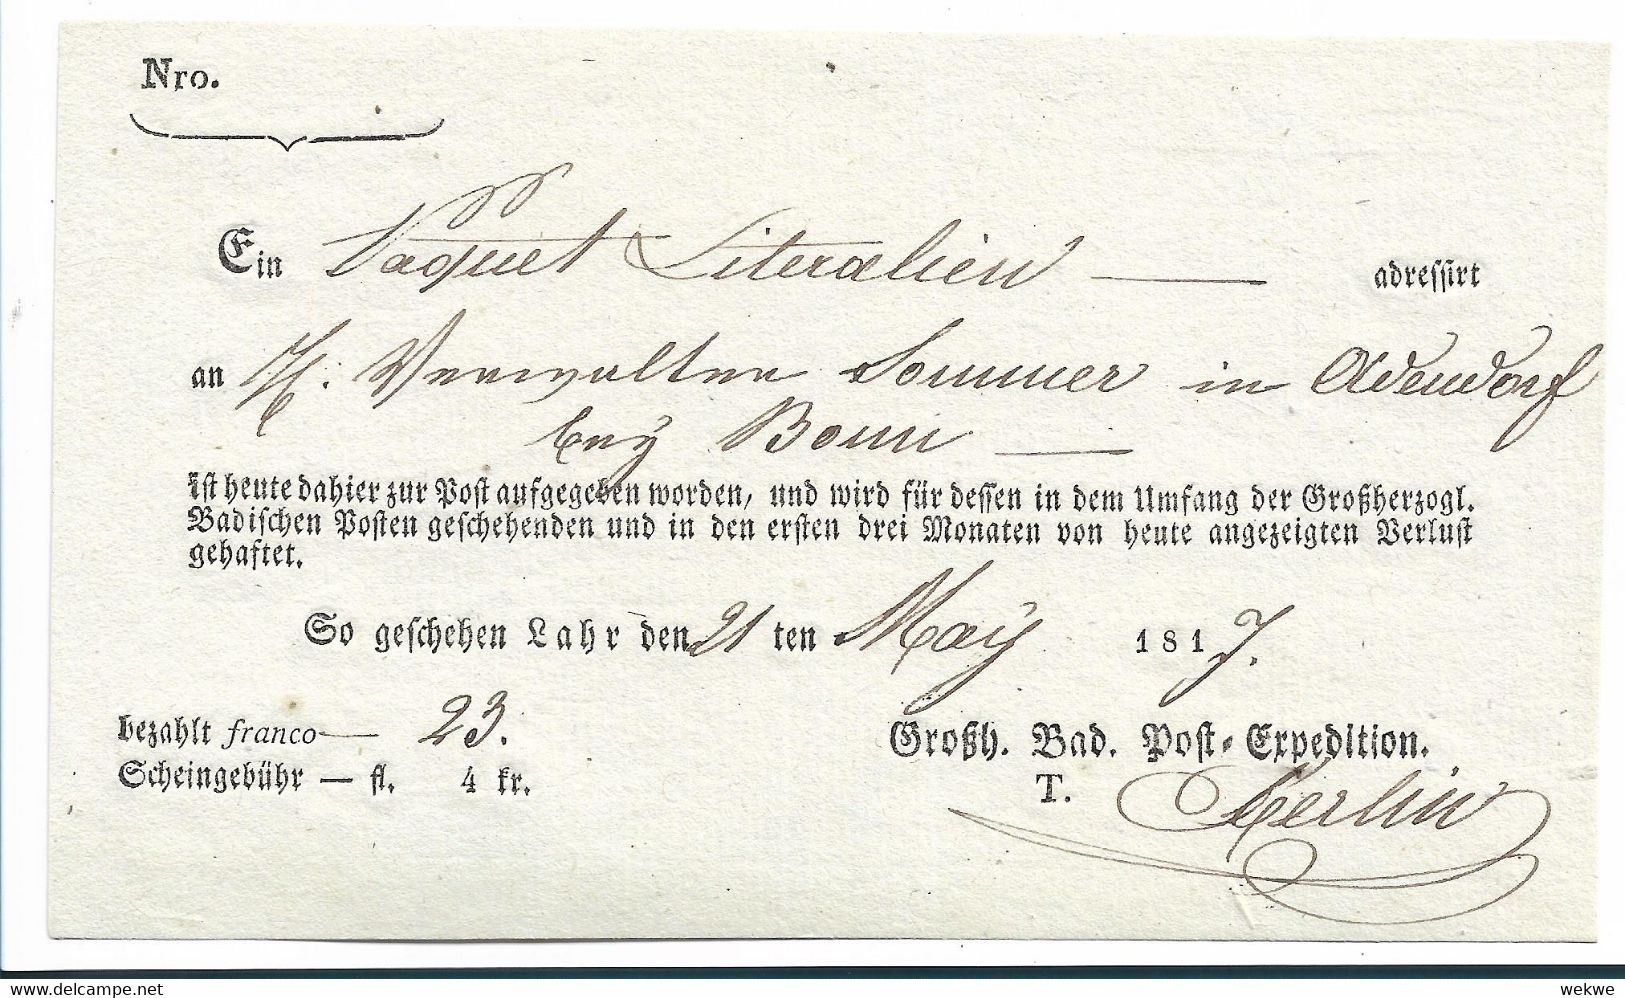 Nro.
Ein Paquet Literalien — adressirt
an H. Verwalter Sommer in Adendorf
bey Bonn —
ist heute dahier zur Post aufgegeben worden, und wird für dessen in dem Umfang der Großherzogl.
Badischen Posten geschehenden und in den ersten drei Monaten von heute angezeigten Verlust
gehaftet.
So geschehen Lahr den 21 ten May 1817.
bezahlt franco — 23.
Scheingebühr — fl. 4 kr.
Großh. Bad. Post-Expedition.
T.
delcampe.net
wekwe